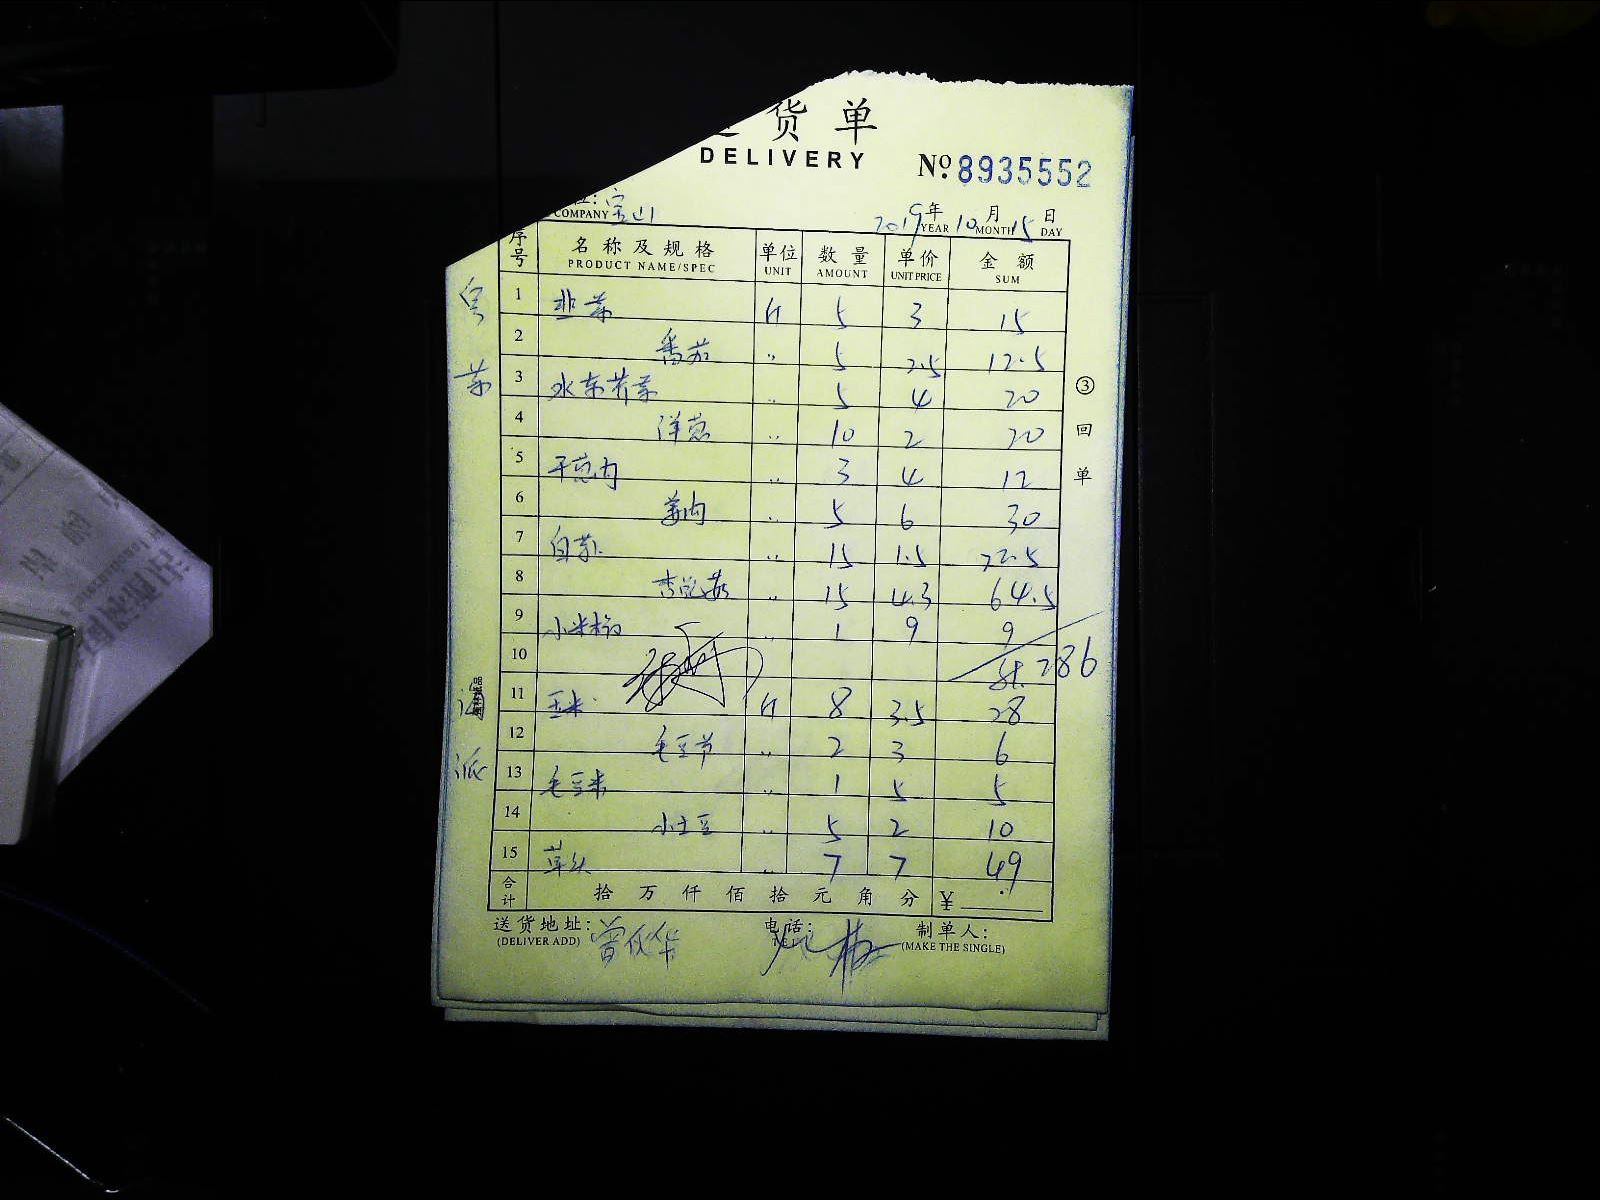 货单
DELIVERY
No. 8935552
COMPANY 宝山
2019年 10月 15日
YEAR MONTH DAY
序号 名称及规格 单位 数量 单价 金额
PRODUCT NAME/SPEC UNIT AMOUNT UNIT PRICE SUM
1 韭菜 斤 5 3 15
2 番茄 〃 5 2.5 12.5
3 水东芥菜 〃 5 4 20
4 洋葱 〃 10 2 20
5 干葱肉 〃 3 4 12
6 姜肉 〃 5 6 30
7 白菜 〃 15 1.5 22.5
8 〃 15 4.3 64.5
9 小米椒 〃 1 9 9
10 286
11 玉米 斤 8 3.5 28
12 毛豆节 〃 2 3 6
13 毛豆米 〃 1 5 5
14 小土豆 〃 5 2 10
15 草头 〃 7 7 49
合计 拾 万 仟 佰 拾 元 角 分 ¥
送货地址: 电话: 制单人:
(DELIVER ADD) (MAKE THE SINGLE)
③回单
派